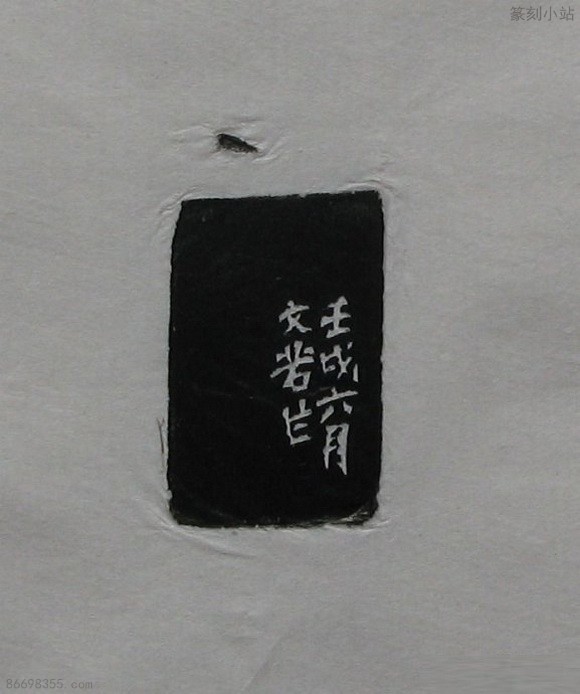 篆刻小站
壬戌六月
文若作
86698355.com